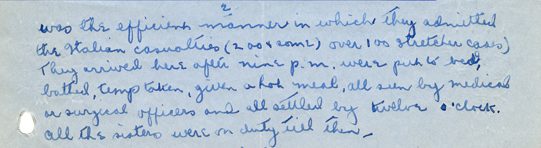 2
was the efficient manner in which they admitted
the Italian casualties (200 & some) over 100 stretcher cases)
They arrived here after nine p.m. were put to bed,
bathed, temp taken, given a hot meal, all seen by medical
or surgical officers and all settled by twelve o'clock.
All the sisters were on duty till then_